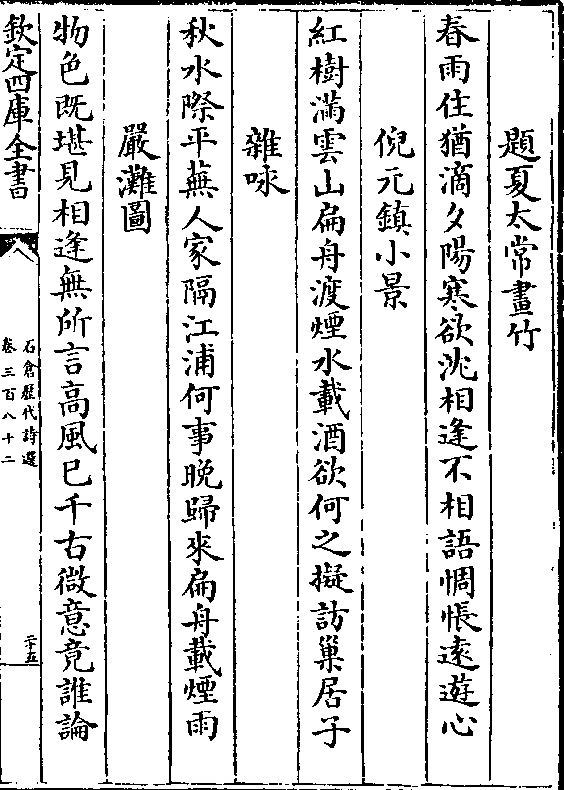 題夏太常畫竹
春雨住猶滴夕陽寒欲沈相逢不相語惆悵遠遊心
倪元鎮小景
紅樹滿雲山扁舟渡煙水載酒欲何之擬訪巢居子
雜咏
秋水際平蕪人家隔江浦何事晚歸來扁舟載煙雨
嚴灘圖
物色既堪見相逢無所言高風已千古微意竟誰論
欽定四庫全書
石倉歷代詩選
卷三百八十二
二十五